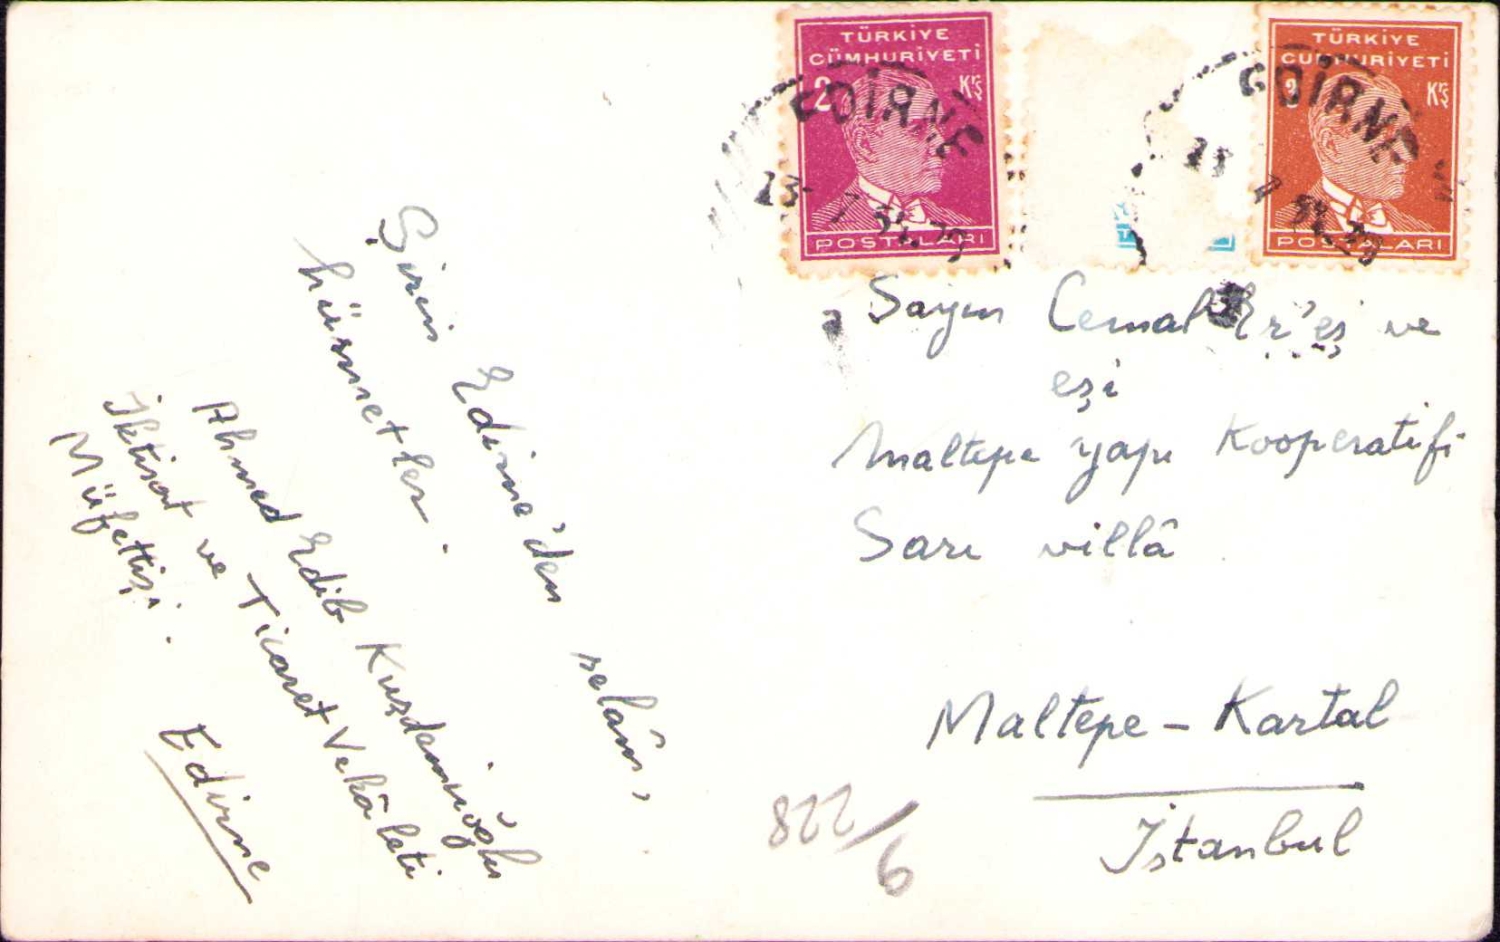 TÜRKİYE
CÜMHURİYETİ
2 Krş
POSTALARI
EDİRNE
TÜRKİYE
CUMHURİYETİ
3 Krş
POSTALARI
EDİRNE
Şirin Edirne'den selâm,
hürmetler.
Ahmed Edib Kuşdemiroğlu
İktisat ve Ticaret Vekâleti
Müfettişi.
Edirne
Sayın Cemal Er'eş ve
eşi
Maltepe yapı Kooperatifi
Sarı villâ
Maltepe - Kartal
İstanbul
228/9